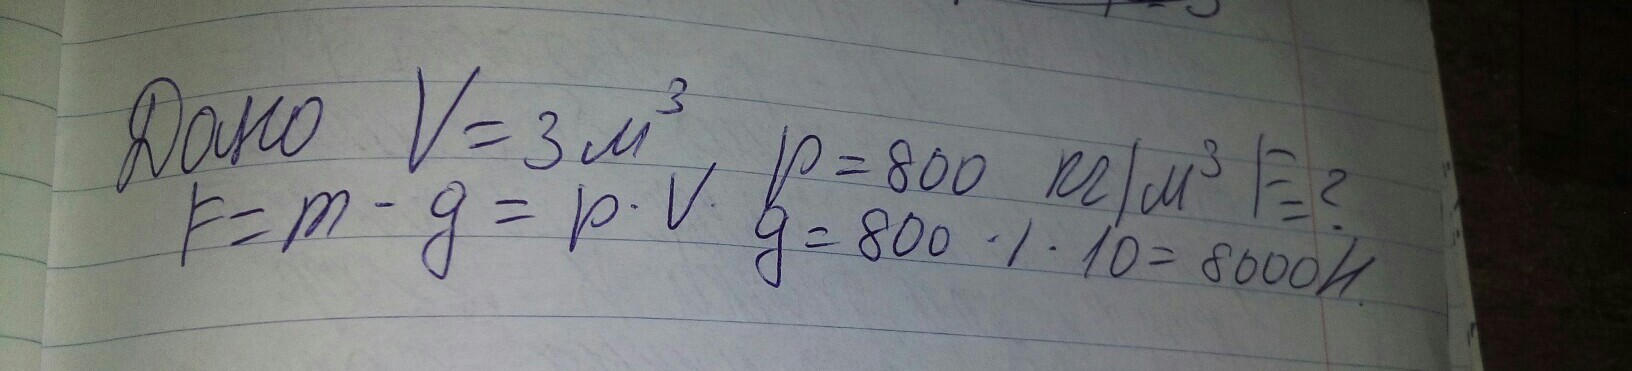 Дано V=3м³ p=800 кг/м³ F=?
F=m-g=p·V·g=800·1·10=8000Н.